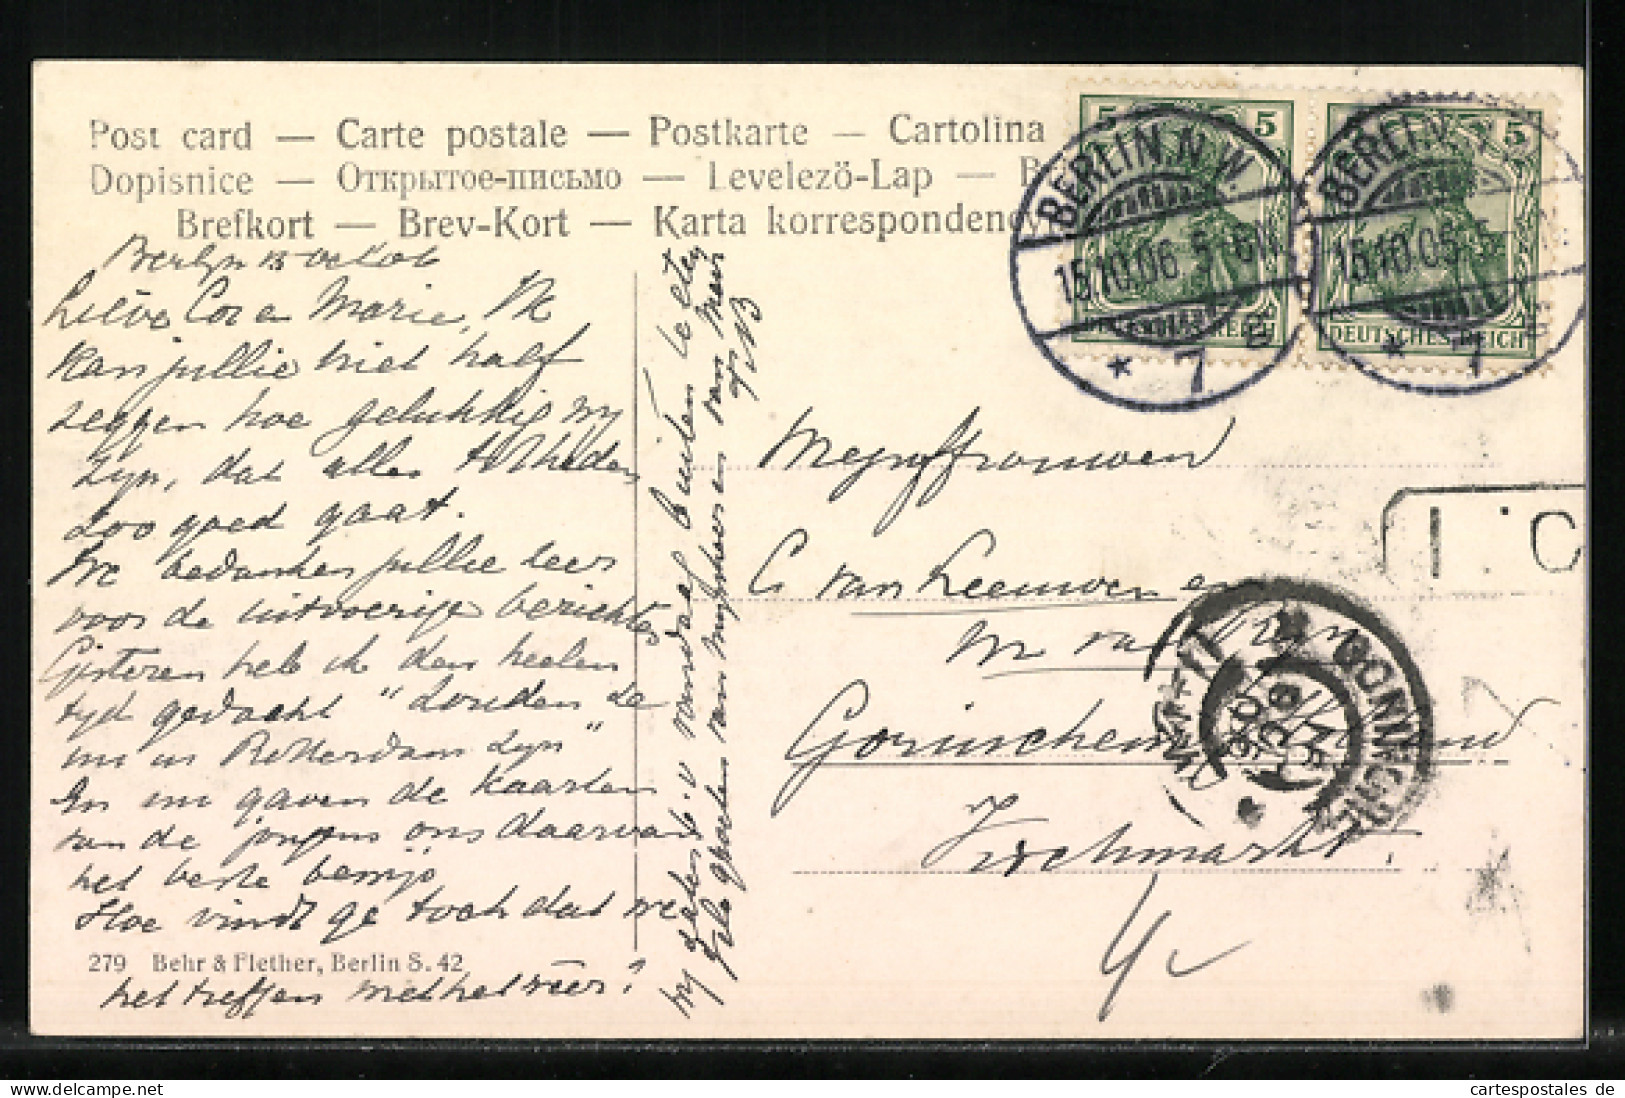 Post card — Carte postale — Postkarte — Cartolina
Dopisnice — Открытое-письмо — Levelezö-Lap — B
Brefkort — Brev-Kort — Karta korrespondenc
5 5
5
BERLIN N.W.
15.10.06. 5-6N
* 7 e
DEUTSCHES REICH
BERLIN
15.10.06
* 7
DEUTSCHES REICH
Berlyn 15 Octob
Lieve Co en Marie, Ik
kan jullie niet half
zeggen hoe gelukkig wy
zyn, dat alles tot heden
zoo goed gaat.
We bedanken jullie zeer
voor de uitvoerige berichten
Gisteren heb ik den heelen
tyd gedacht "zouden ze
nu in Rotterdam zyn"
En nu gaven de kaarten
van de jongens ons daarvan
het beste bewijs
Hoe vindt ge toch dat we
het treffen met het weer?
279 Behr & Flether, Berlin S. 42
Wy zaten vandaag buiten te eten
Vele groeten van mynheer en van Mevr
Mejuffrouwen
C van Leeuwen en
M van
Gorinchem
Vischmarkt.
I.C